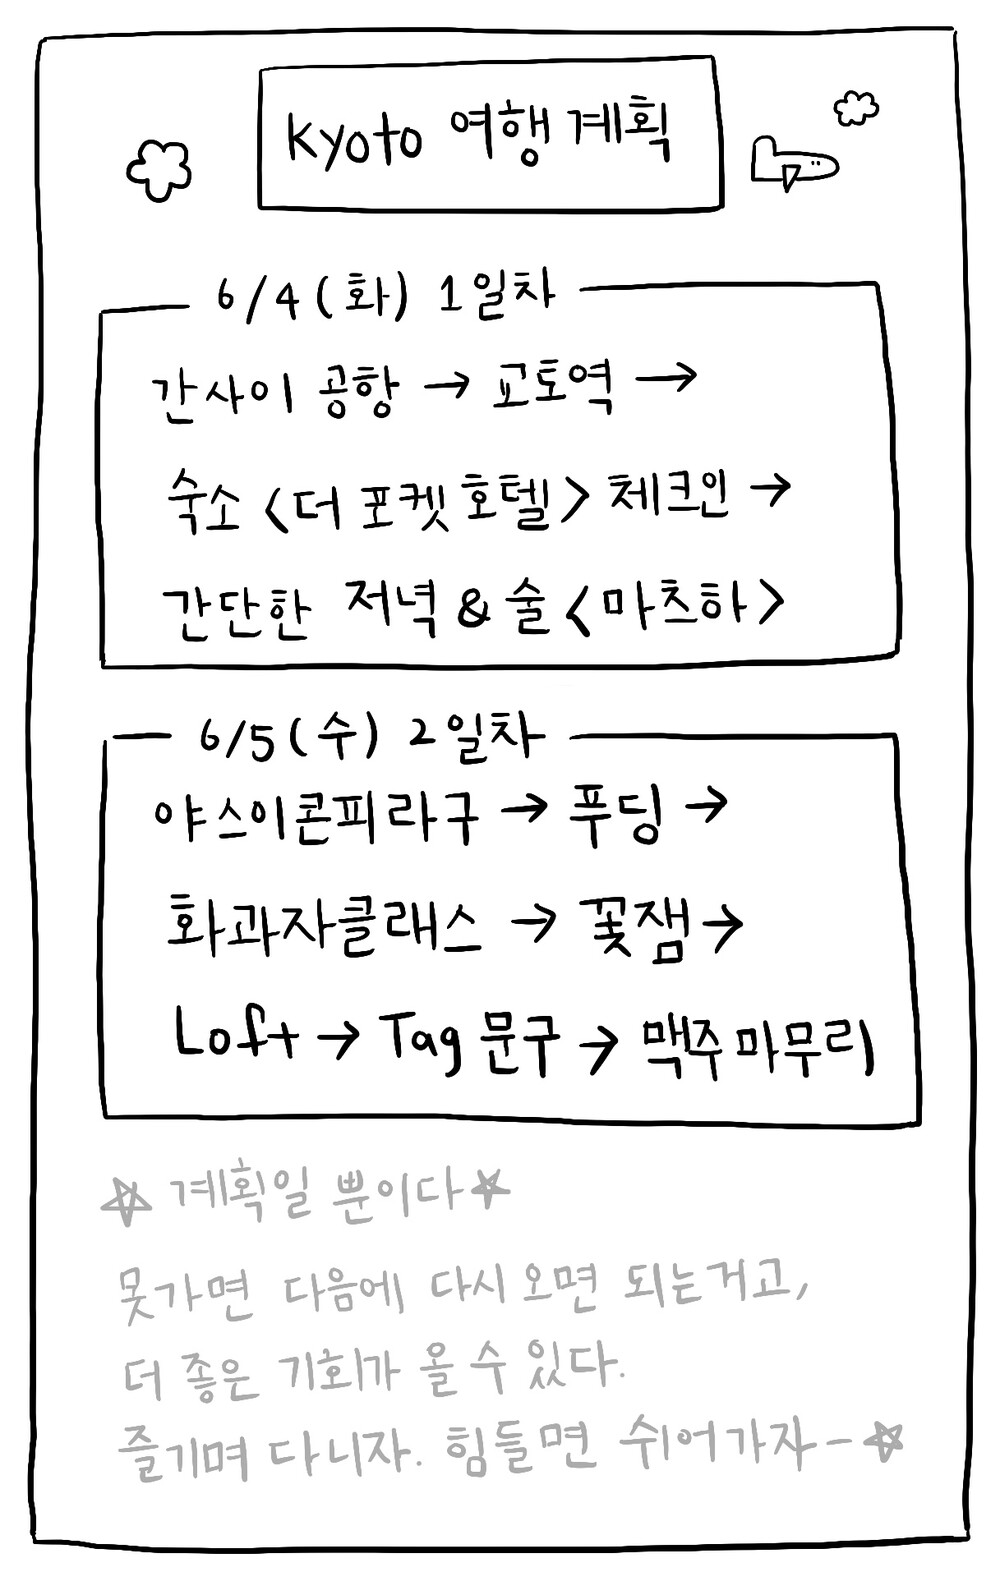 kyoto 여행 계획
6/4(화) 1일차
간사이 공항 → 교토역 →
숙소 <더 포켓 호텔> 체크인 →
간단한 저녁 & 술 <마츠하>
6/5(수) 2일차
야스이콘피라구 → 푸딩 →
화과자클래스 → 꽃잼 →
Loft → Tag 문구 → 맥주 마무리
☆ 계획일 뿐이다 ☆
못가면 다음에 다시 오면 되는거고,
더 좋은 기회가 올 수 있다.
즐기며 다니자. 힘들면 쉬어가자- ☆